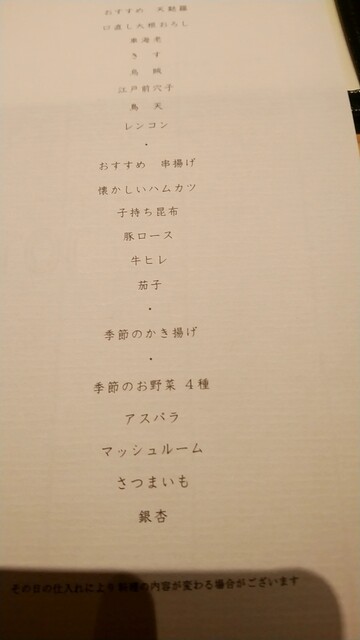 おすすめ 天麩羅
口直し大根おろし
車海老
きす
烏賊
江戸前穴子
鳥天
レンコン
・
おすすめ 串揚げ
懐かしいハムカツ
子持ち昆布
豚ロース
牛ヒレ
茄子
・
季節のかき揚げ
・
季節のお野菜 4種
アスパラ
マッシュルーム
さつまいも
銀杏
その日の仕入れにより料理の内容が変わる場合がございます